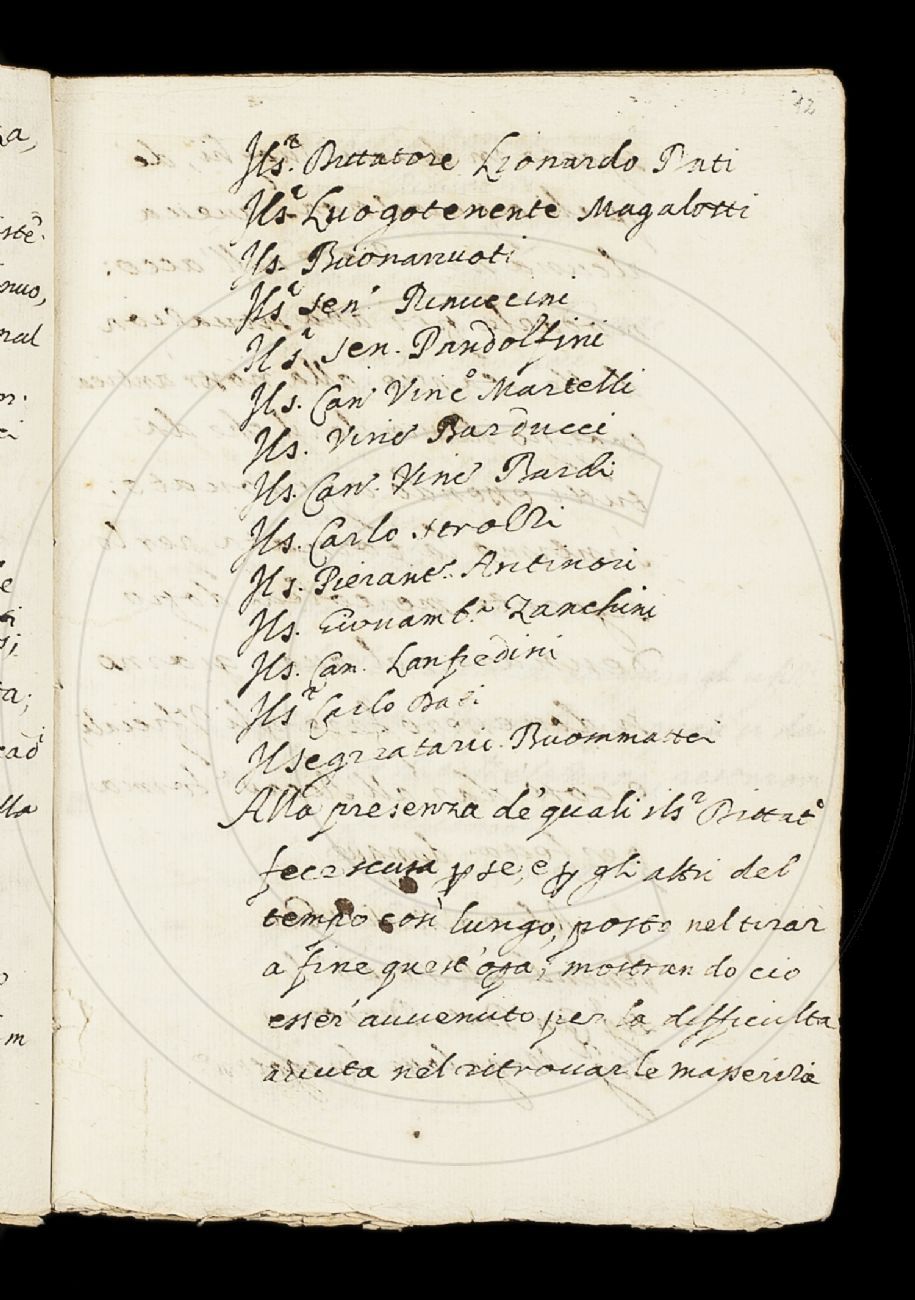 32
Il s.r Dittatore Lionardo Dati
Il s.r Luogotenente Magalotti
Il s. Buonarruoti
Il s.r sen.r Rinuccini
Il s.r sen. Pandolfini
Il s. Can.co Vinc.o Martelli
Il s. Vinc.o Barducci
Il s. Can.co Vinc.o Bardi
Il s. Carlo Strozzi
Il s. Pierant.o Antinori
Il s. Giovamb.a Zanchini
Il s. Can. Lanfredini
Il s.r Carlo Dati
Il segretario Buommattei
Alla presenza de' quali il s.r Dittat.e
fece scusa p se, e p gli altri del
tempo così lungo, posto nel tirar
a fine quest'opa; mostrando cio
esser' auuenuto per la difficulta
auuta nel ritrouar le masserizie